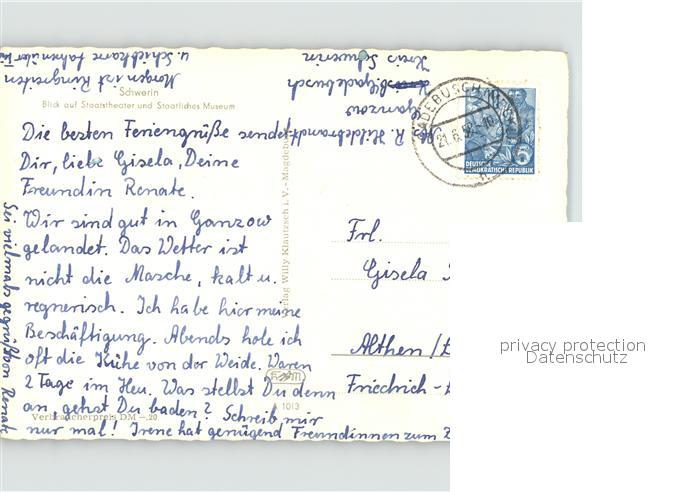 u. Schiebkarre fahren über
Morgen ist Ringreiten
Kreis Schwerin
Gadebusch
Ganzow
R. Hildebrandt
Schwerin
Blick auf Staatstheater und Staatliches Museum
Die besten Feriengrüße sendet
Dir, liebe Gisela, Deine
Freundin Renate.
Wir sind gut in Ganzow
gelandet. Das Wetter ist
nicht die Masche, kalt u.
regnerisch. Ich habe hier meine
Beschäftigung. Abends hole ich
oft die Kühe von der Weide. Waren
2 Tage im Heu. Was stellst Du denn
an, gehst Du baden? Schreib mir
nur mal! Irene hat genügend Freundinnen zum
Sei vielmals gegrüßt von Renate
Verbraucherpreis DM -.20
1013
Verlag Willy Klautzsch i. V. - Magdeburg
GADEBUSCH
21.6.5
DEUTSCHE
DEMOKRATISCHE REPUBLIK
5
Frl.
Gisela
Althen /
Friedrich-
privacy protection
Datenschutz